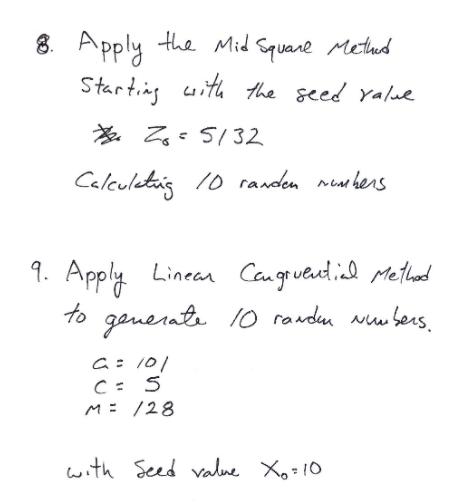 8. Apply the Mid Square Method
Starting with the seed value
Z₀ = 5132
Calculating 10 random numbers
9. Apply Linear Congruential Method
to generate 10 random numbers.
a = 101
c = 5
m = 128
with seed value X₀ = 10